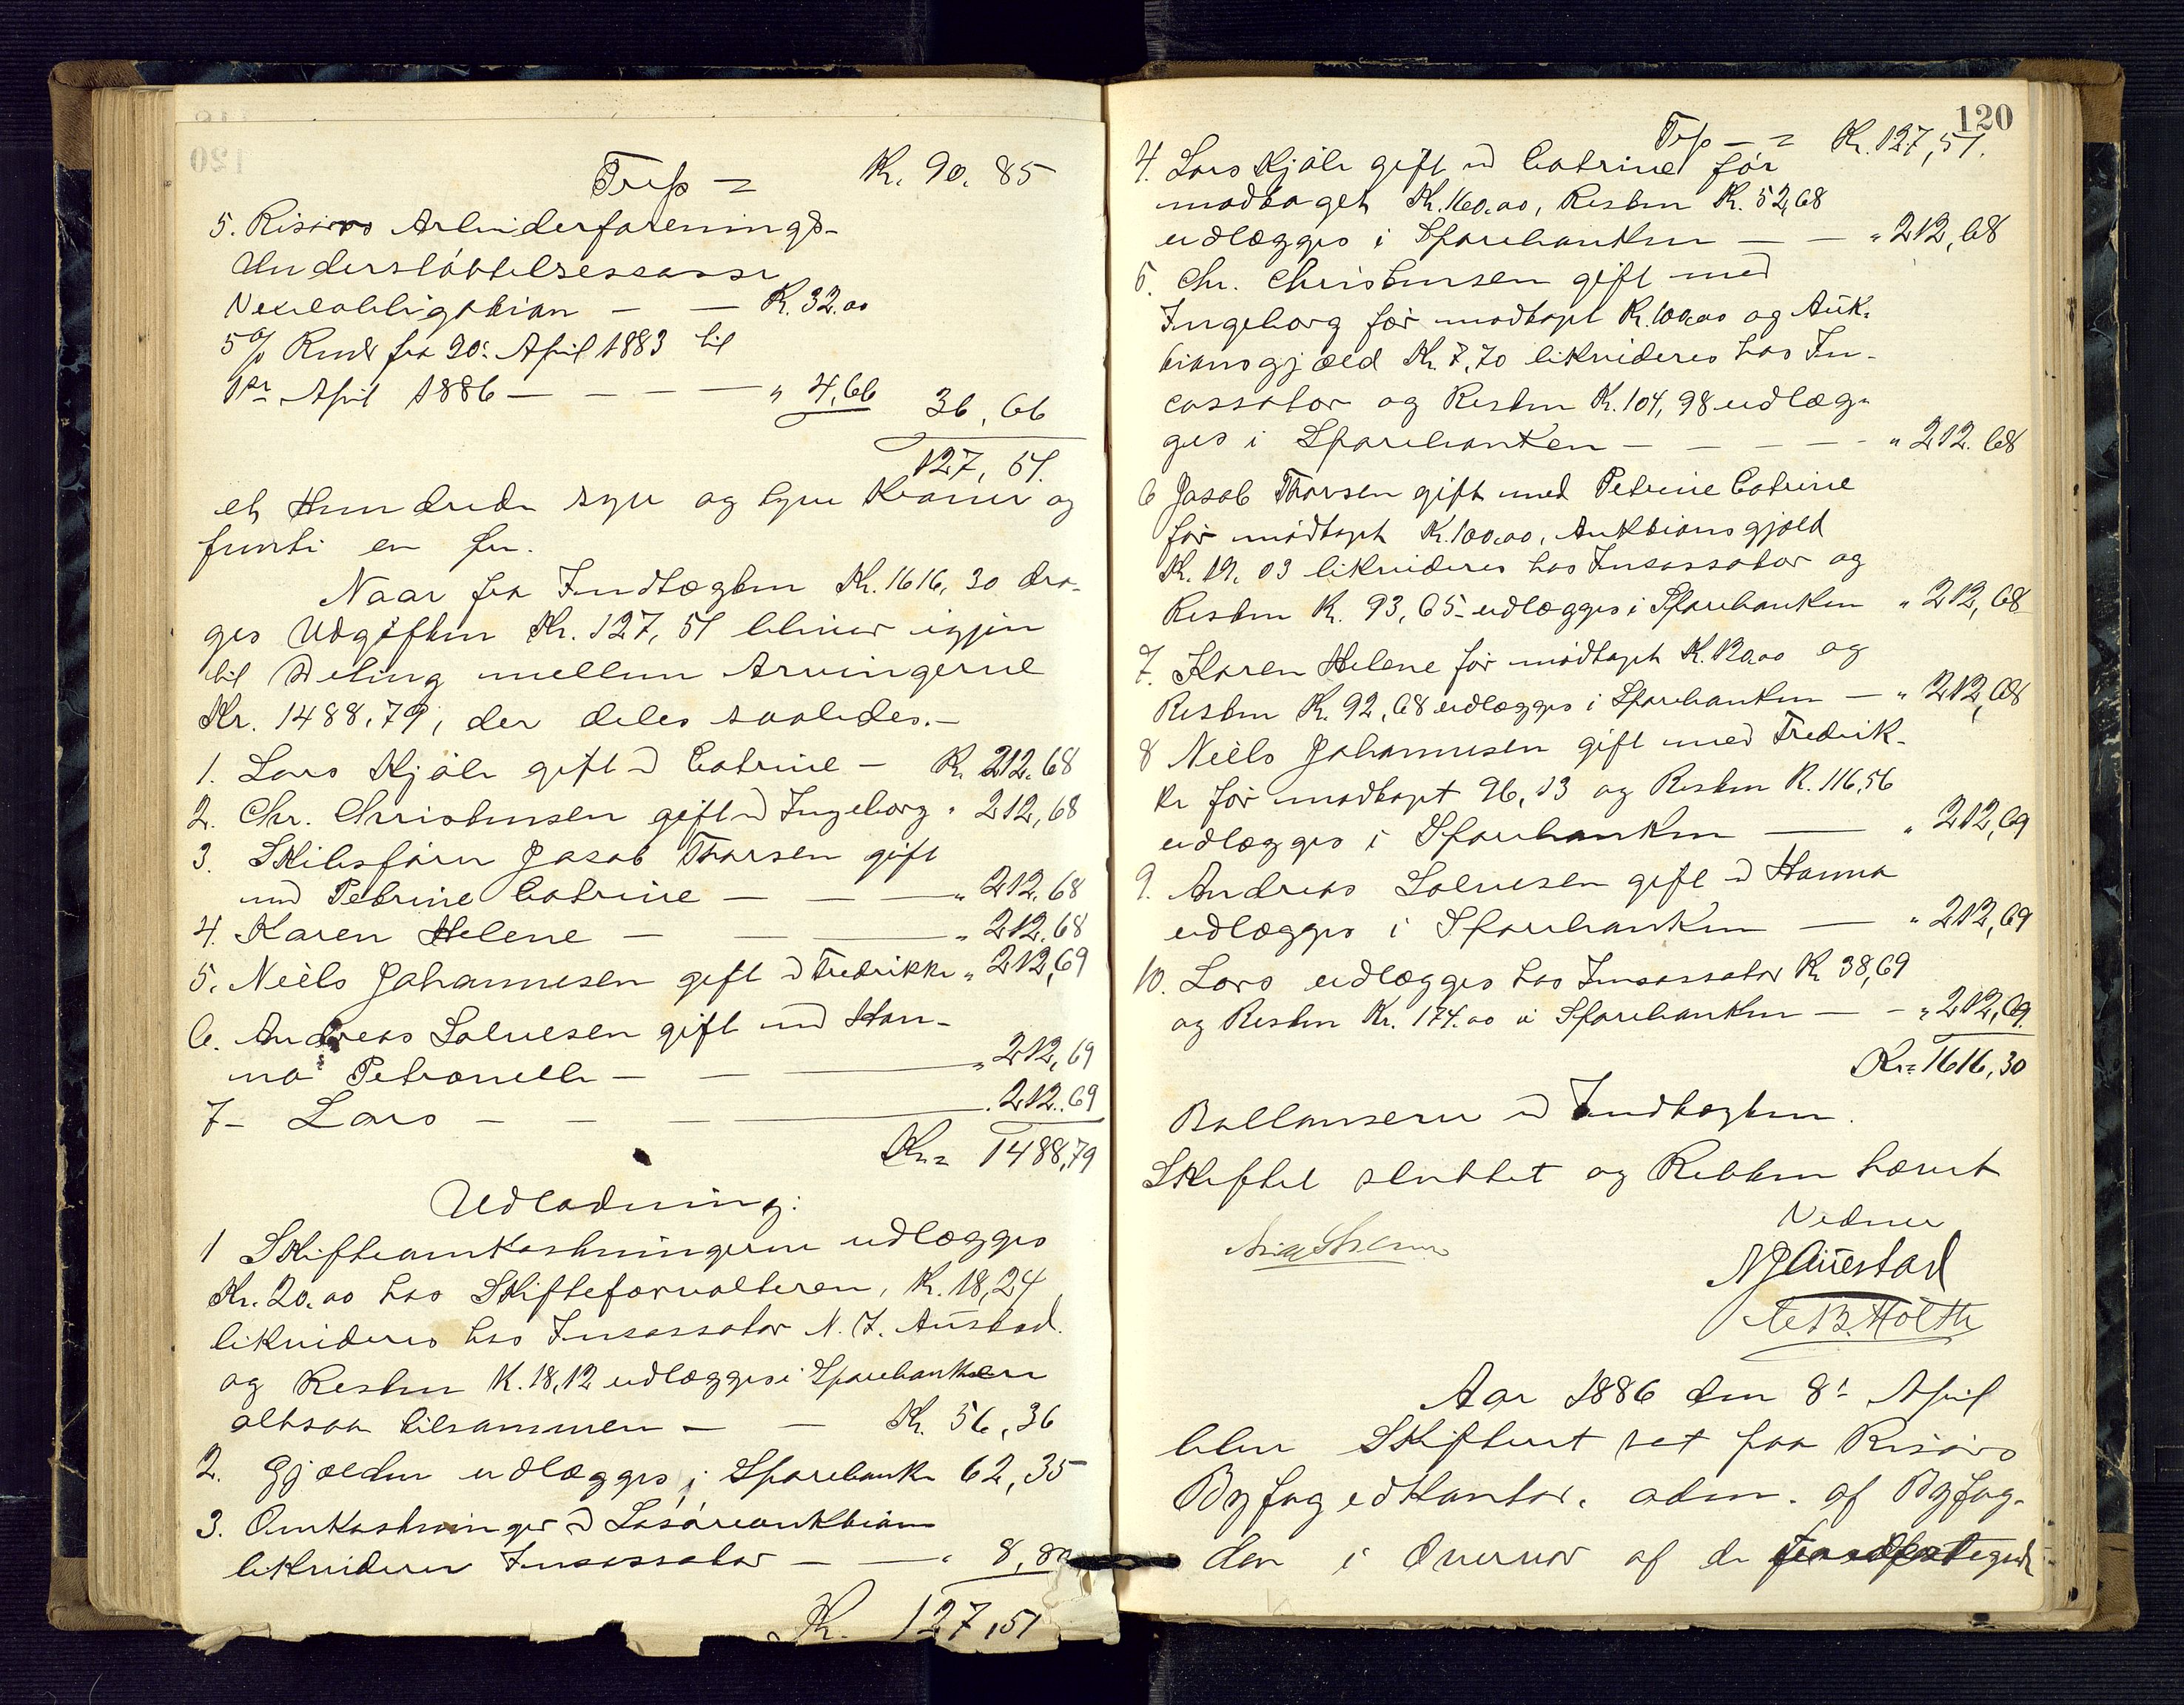 Trsp = K. 90. 85
5. Risørs Arbeiderforenings-
Understøttelsescasse
Vexelobligation — — K. 32.00
5 % Rente fra 20: April 1883 til
1ste April 1886 — — — — " 4,66 36,66
127,51.
et Hundrede syv og tyve Kroner og
femti en Øre.
Naar fra Indtægten Kr. 1616,30 dra-
ges Udgiften Kr. 127,51 bliver igjen
til Deling mellem Arvingerne
Kr. 1488,79, der deles saaledes.—
1. Lars Kjøle gift m Catrine — K. 212.68
2. Chr. Christensen gift m Ingeborg " 212,68
3. Skibsfører Jacob Thorsen gift
med Petrine Catrine — — — " 212.68
4. Karen Helene — — — " 212.68
5. Niels Johannesen gift m Fredrikke " 212,69
6. Andreas Salvesen gift med Han-
na Petronelle — — — " 212,69
7- Lars — — — . 212.69
Kr = 1488,79
Udlodning:
1 Skifteomkostningerne udlægges
Kr. 20.00 hos Skifteforvalteren, K. 18,24
likvideres hos Incassator N. J. Austad.
og Resten K. 18,12 udlægges i Sparebanken
altsaa tilsammen — — Kr. 56,36
2. Gjælden udlægges i Sparebank 62,35
3. Omkostninger m Løsøreauktion
likviderer Incassator — — " 8,80
K. 127,51
120
Trsp — = K. 127,51.
4. Lars Kjøle gift m Catrine for
modtaget K. 160.00, Resten K. 52,68
udlægges i Sparebanken — — " 212,68
5. Chr. Christensen gift med
Ingeborg for modtaget K. 100.00 og Auk-
tionsgjæld K. 7,70 likvideres hos In-
cassator og Resten K. 104,98 udlæg-
ges i Sparebanken — — — - " 212.68
6 Jacob Thorsen gift med Petrine Catrine
for modtaget K. 100.00, Auktionsgjæld
K. 19.03 likvideres hos Incassator og
Resten K. 93,65 udlægges i Sparebanken " 212,68
7. Karen Helene for modtaget K. 120.00 og
Resten K. 92,68 udlægges i Sparebanken — " 212,68
8 Niels Johannesen gift med Fredrik-
ke for modtaget 96,13 og Resten K. 116,56
udlægges i Sparebanken — " 212,69
9. Andreas Salvesen gift m Hanna
udlægges i Sparebanken — " 212,69
10. Lars udlægges hos Incassator K 38,69
og Resten Kr. 174.00 i Sparebanken — - " 212,69.
Kr = 1616,30
Ballanserer m Indtægten.
Skiftet sluttet og Retten hævet
Vidner
NJAuestad
Holth
Aar 1886 den 8: April
blev Skifteret sat paa Risørs
Byfogedkontor. adm. af Byfog-
den i Overvær af de